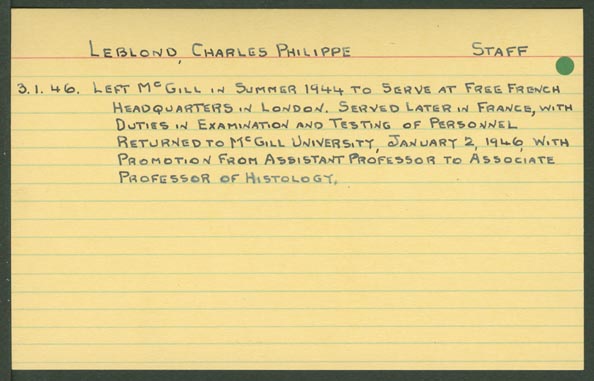 LEBLOND, CHARLES PHILIPPE STAFF
3.1.46. LEFT McGILL IN SUMMER 1944 TO SERVE AT FREE FRENCH
HEADQUARTERS IN LONDON. SERVED LATER IN FRANCE, WITH
DUTIES IN EXAMINATION AND TESTING OF PERSONNEL
RETURNED TO McGILL UNIVERSITY, JANUARY 2, 1946, WITH
PROMOTION FROM ASSISTANT PROFESSOR TO ASSOCIATE
PROFESSOR OF HISTOLOGY.